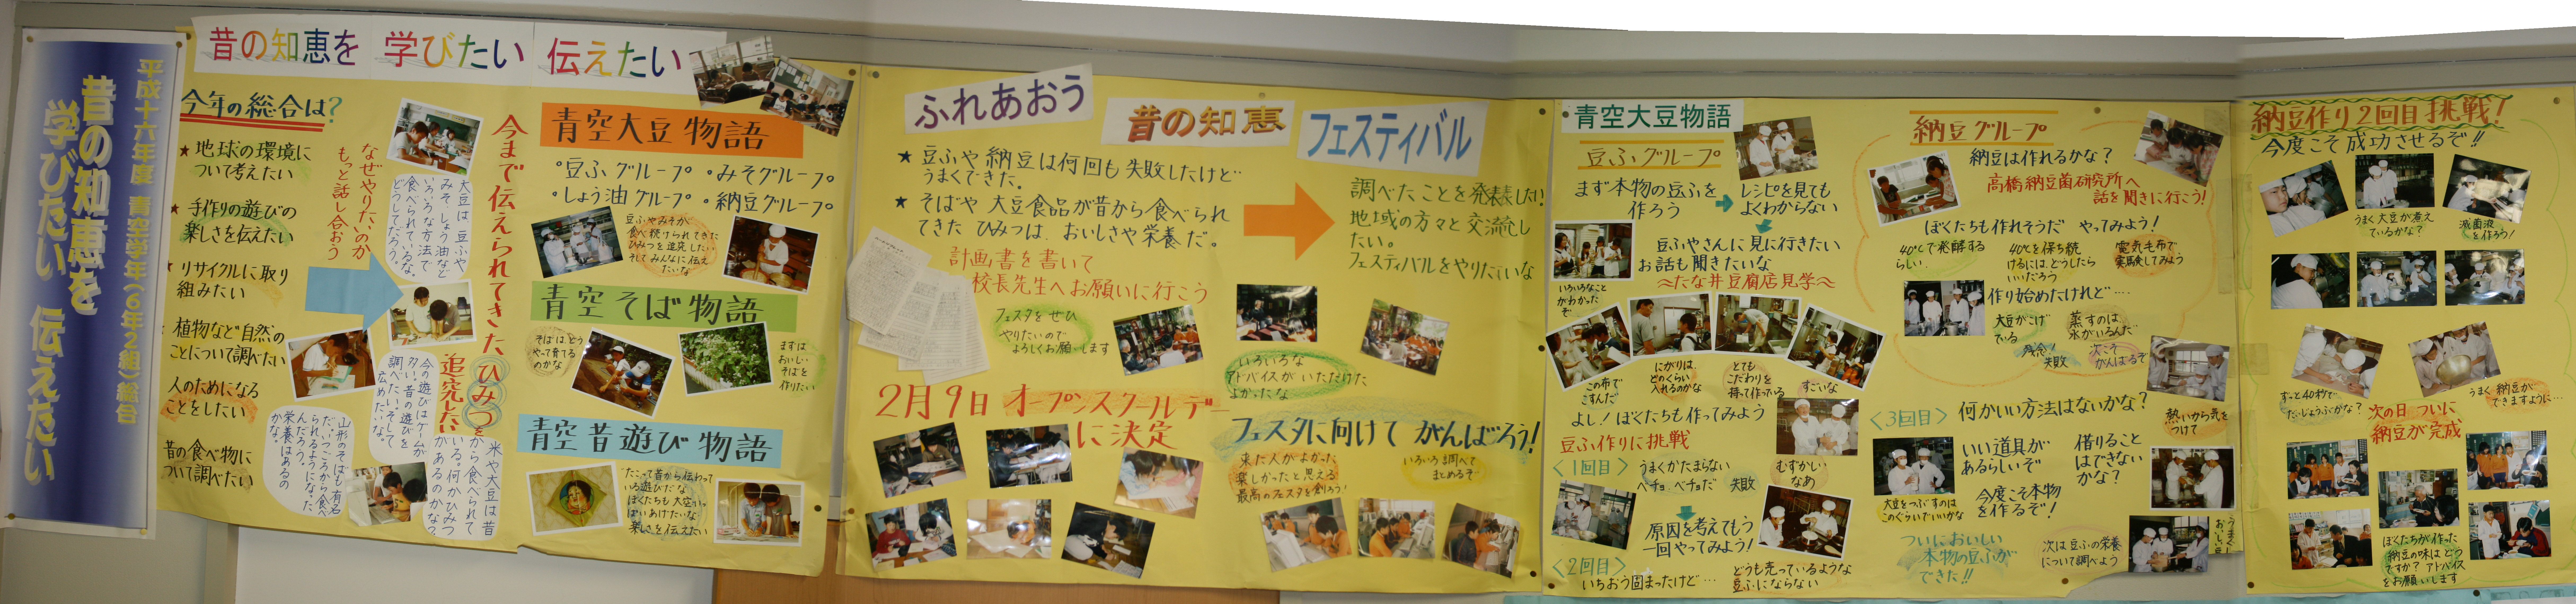 平成十六年度 青空学年(6年2組)総合
昔の知恵を
学びたい 伝えたい
昔の知恵を 学びたい 伝えたい
今年の総合は?
★地球の環境に
ついて考えたい
★手作りの遊びの
楽しさを伝えたい
★リサイクルに取り
組みたい
植物など自然の
ことについて調べたい
人のためになる
ことをしたい
昔の食べ物に
ついて調べたい
なぜやりたいのか
もっと話し合おう
大豆は豆ふや
みそ、しょう油など
いろいろな方法で
食べられているな。
どうしてだろう。
今の遊びはゲームが
多い。昔の遊びを
調べたい。そして
広めたいな。
山形のそばも有名
だ。いつごろから食べ
られるようになった
んだろう。
栄養はあるの
かな。
今まで伝えられてきたひみつを
追究したい
米や大豆は昔
から食べられて
いる。何かひみつ
があるのかな?
青空大豆物語
・豆ふグループ ・みそグループ
・しょう油グループ ・納豆グループ
豆ふやみそが
食べ続けられてきた
ひみつを追究したい
そしてみんなに伝え
たいな
青空そば物語
そばはどう
やって育てる
のかな
まずは
おいしい
そばを
作りたい
青空昔遊び物語
たこって昔から伝わって
いる遊びだな
ぼくたちも大空いっ
ぱいあげたいな
楽しさを伝えたい
ふれあおう 昔の知恵 フェスティバル
★豆ふや納豆は何回も失敗したけど…
うまくできた。
★そばや大豆食品が昔から食べられ
てきたひみつは、おいしさや栄養だ。
調べたことを発表したい!
地域の方々と交流し
たい。
フェスティバルをやりたいな
計画書を書いて
校長先生へお願いに行こう
フェスタをぜひ
やりたいので
よろしくお願いします
いろいろな
アドバイスがいただけた
よかったな
2月9日オープンスクールデー
に決定
フェスタに向けてがんばろう!
来た人がよかった
楽しかったと思える
最高のフェスタを創ろう!
いろいろ調べて
まとめるぞ
青空大豆物語
豆ふグループ
まず本物の豆ふを
作ろう
レシピを見ても
よくわからない
豆ふやさんに見に行きたい
お話も聞きたいな
〜たな井豆腐店見学〜
いろいろなこと
がわかった
ぞ
この布で
こすんだ
にがりは、
どのくらい
入れるのかな
とても
こだわりを
持って作っている
すごいな
よし!ぼくたちも作ってみよう
豆ふ作りに挑戦
<1回目>うまくかたまらない
ベチョベチョだ 失敗
むずかしい
なあ
原因を考えてもう
一回やってみよう!
<2回目>
いちおう固まったけど…
どうも売っているような
豆ふにならない
納豆グループ
納豆は作れるかな?
高橋納豆菌研究所へ
話を聞きに行こう!
ぼくたちも作れそうだ やってみよう!
40℃で発酵する
らしい
40℃を保ち続
けるには、どうしたら
いいだろう
電気毛布で
実験してみよう
作り始めたけれど…
大豆がこげ
ている
蒸すのは
水がいるんだ
残念!
失敗
次こそ
がんばるぞ
熱いから気を
つけて
<3回目>何かいい方法はないかな?
いい道具が
あるらしいぞ
借りること
はできない
かな?
大豆をつぶすのは
このぐらいでいいかな
今度こそ本物
を作るぞ!
ついにおいしい
本物の豆ふが
できた!!
次は豆ふの栄養
について調べよう
納豆作り2回目挑戦!
今度こそ成功させるぞ!!
うまく大豆が煮え
ているかな?
滅菌液
を作ろう!
ずっと40秒で
だいじょうぶかな?
うまく納豆が
できますように…
次の日ついに
納豆が完成
ぼくたちが作った
納豆の味はどう
ですか?アドバイス
をお願いします